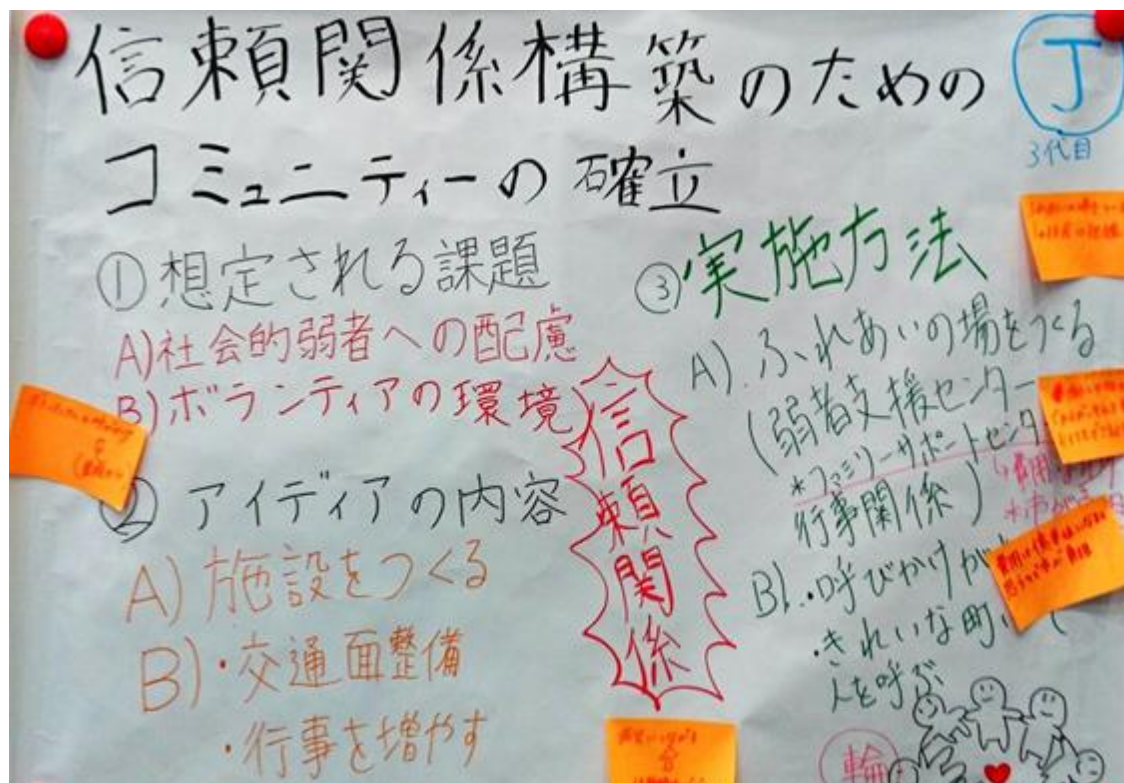 信頼関係構築のための
コミュニティーの確立
J
3代目
①想定される課題
A)社会的弱者への配慮
B)ボランティアの環境
②アイディアの内容
A)施設をつくる
B)・交通面整備
・行事を増やす
信頼関係
③実施方法
A).ふれあいの場をつくる
(弱者支援センター
*ファミリーサポートセンター
行事関係)
B).・呼びかけが
・きれいな町
人を呼ぶ
輪